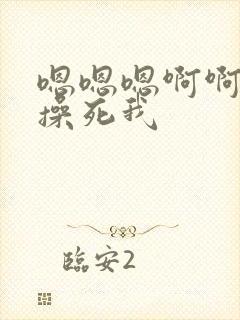 嗯嗯嗯啊啊
操死我
臨安2